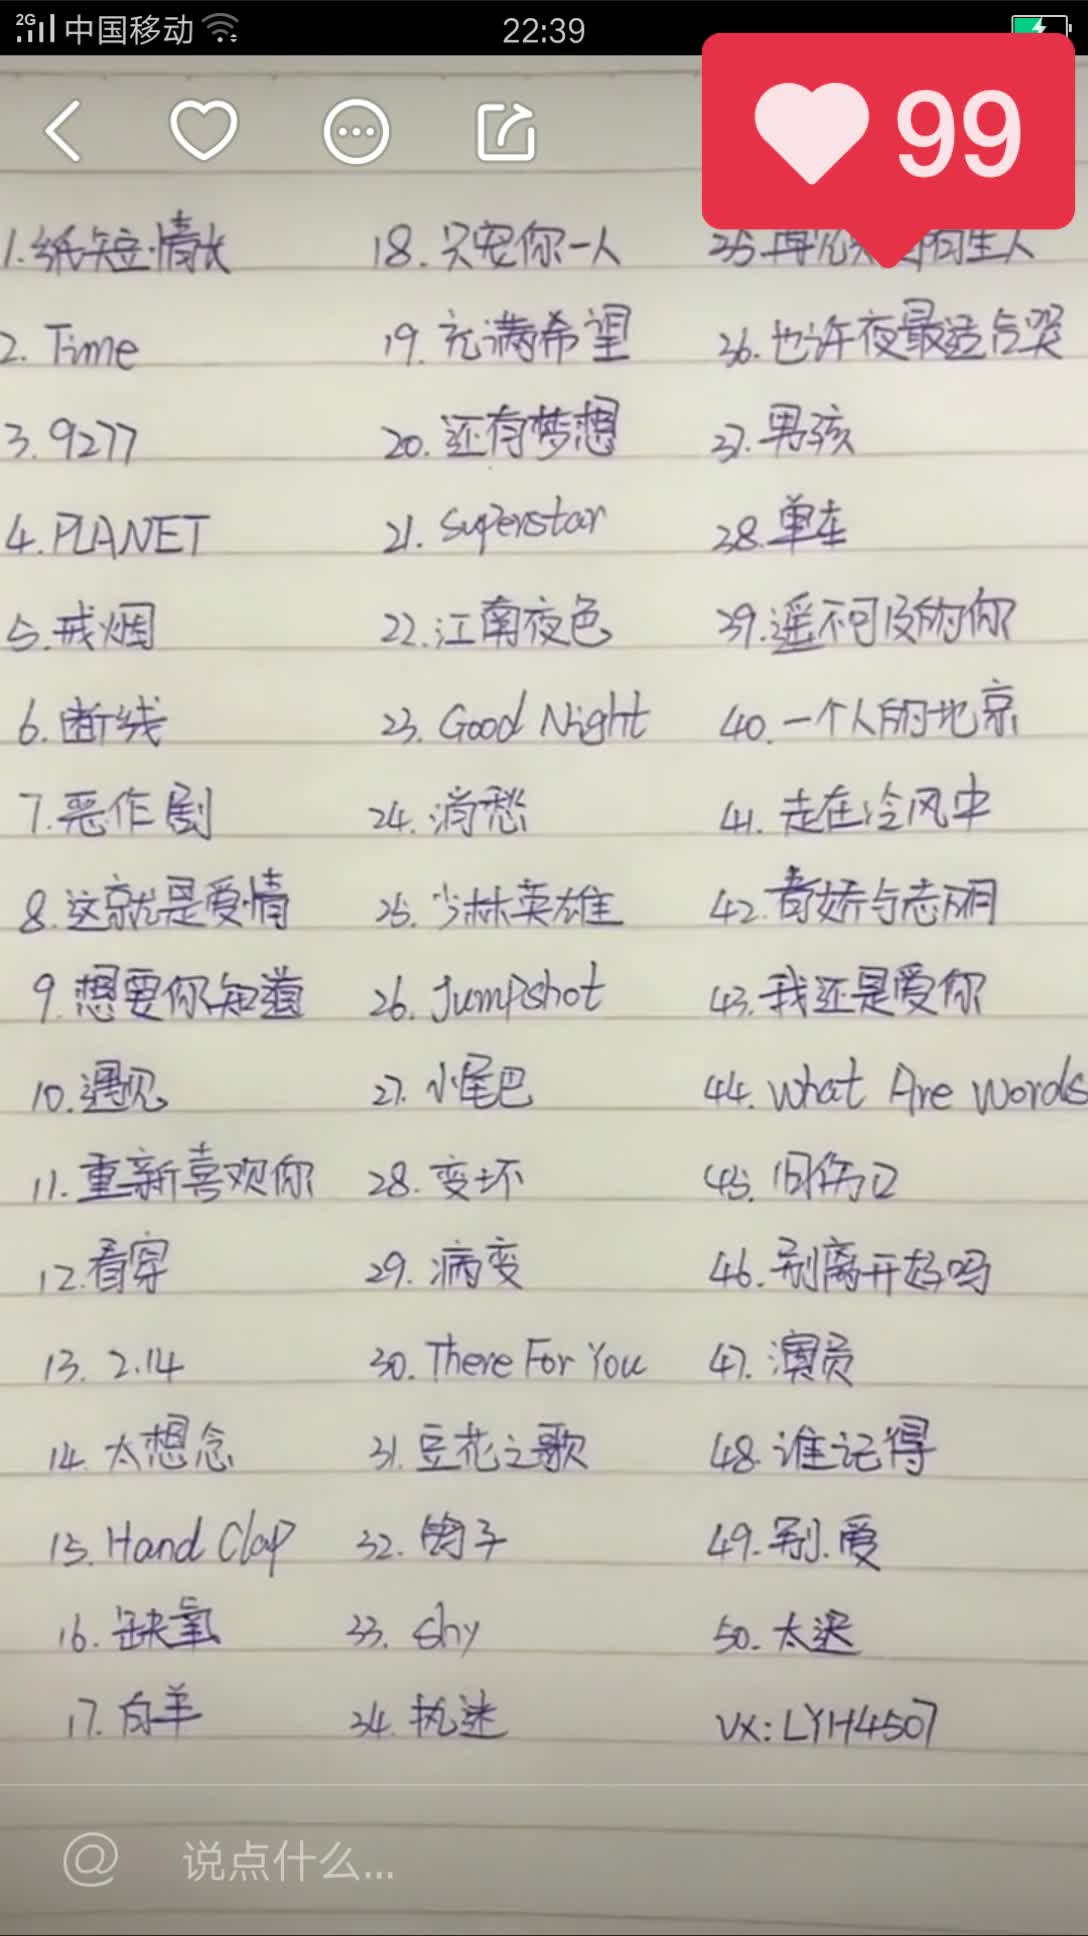 2G 中国移动 22:39
99
1.纸短情长
2. Time
3. 9277
4. PLANET
5.戒烟
6.断线
7.恶作剧
8.这就是爱情
9.想要你知道
10.遇见
11.重新喜欢你
12.看穿
13. 2.14
14.太想念
15. Hand Clap
16.缺氧
17.白羊
18.只宠你一人
19.充满希望
20.还有梦想
21. Superstar
22.江南夜色
23. Good Night
24.消愁
25.少林英雄
26. Jumpshot
27.小尾巴
28.变坏
29.病变
30. There For You
31.豆花之歌
32.鸽子
33. Shy
34.执迷
生人
36.也许夜最适合哭
37.男孩
38.单车
39.遥不可及的你
40.一个人的北京
41.走在冷风中
42.春娇与志明
43.我还是爱你
44. What Are Words
45.旧伤口
46.别离开好吗
47.演员
48.谁记得
49.别.爱
50.太迟
VX: LYH4507
@ 说点什么...